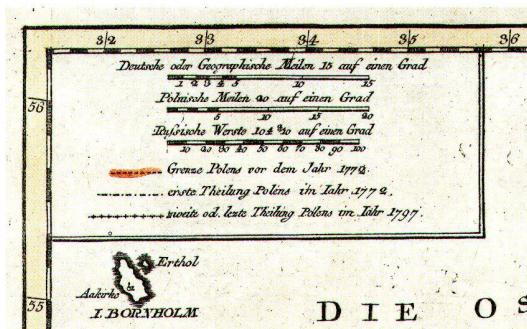 32 33 34 35 36
Deutsche oder Geographische Meilen 15 auf einen Grad
1 2 3 4 5 10 15
56
Polnische Meilen 20 auf einen Grad
5 10 15 20
Russische Werste 104 3/10 auf einen Grad
10 20 30 40 50 60 70 80 90 100
Grenze Polens vor dem Jahr 1772.
erste Theilung Polens im Iahr 1772.
zweite od. lezte Theilung Polens im Iahr 1797.
Erthol
Aakirke
I. BORNHOLM
55
DIE OS